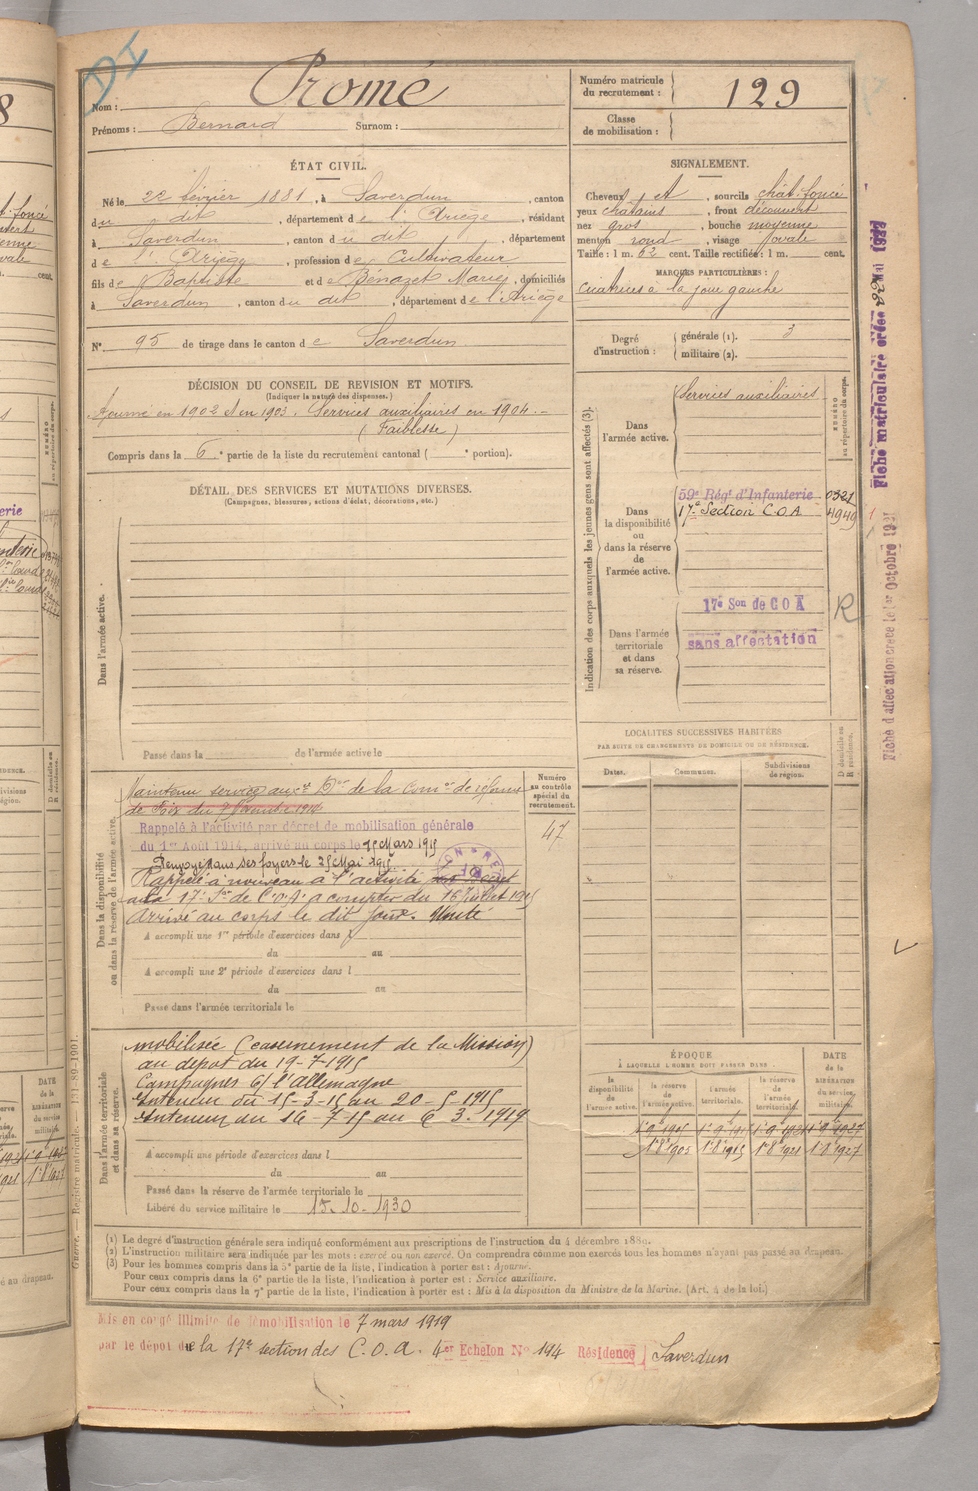 Nom : Promé
Prénoms : Bernard Surnom :
Numéro matricule du recrutement : 129
Classe de mobilisation :
ÉTAT CIVIL.
Né le 22 février 1881, à Saverdun, canton
du dit, département de l'Ariège, résidant
à Saverdun, canton du dit, département
de l'Ariège, profession de Cultivateur
fils de Baptiste et de Bénazet Marie, domiciliés
à Saverdun, canton du dit, département de l'Ariège
N° 95 de tirage dans le canton de Saverdun
SIGNALEMENT.
Cheveux et, sourcils chât-foncé
yeux châtains, front découvert
nez gros, bouche moyenne
menton rond, visage ovale
Taille : 1 m. 62 cent. Taille rectifiée : 1 m. cent.
MARQUES PARTICULIÈRES :
Cicatrices à la joue gauche
Degré d'instruction : générale (1). 3
militaire (2).
DÉCISION DU CONSEIL DE REVISION ET MOTIFS.
(Indiquer la nature des dispenses.)
Ajourné en 1902 & en 1903. Services auxiliaires en 1904.-
(Faiblesse)
Compris dans la 6e partie de la liste du recrutement cantonal ( e portion).
DÉTAIL DES SERVICES ET MUTATIONS DIVERSES.
(Campagnes, blessures, actions d'éclat, décorations, etc.)
Dans l'armée active.
Passé dans la de l'armée active le
Indication des corps auxquels les jeunes gens sont affectés (3).
NUMÉRO au répertoire du corps.
Dans l'armée active.
Services auxiliaires
Dans la disponibilité ou dans la réserve de l'armée active.
59e Régt d'Infanterie 0321
17e Section C.O.A 4949
Dans l'armée territoriale et dans sa réserve.
17e Son de COA R
sans affectation
LOCALITÉS SUCCESSIVES HABITÉES
PAR SUITE DE CHANGEMENTS DE DOMICILE OU DE RÉSIDENCE.
Dates. Communes. Subdivisions de région. D domicile ou R résidence.
Dans la disponibilité ou dans la réserve de l'armée active.
Numéro au contrôle spécial du recrutement.
47
Maintenu service auxre Don de la Comon de réforme
de Foix du 7 Janvier 1914
Rappelé à l'activité par décret de mobilisation générale
du 1er Août 1914, arrivé au corps le 15 Mars 1915
Renvoyé dans ses foyers le 25 Mai 1915
Rappelé à nouveau à l'activité
à la 17e Son de C.O.A. à compter du 16 juillet 1915
Arrivé au corps le dit jour. Unité
A accompli une 1re période d'exercices dans l
du au
A accompli une 2e période d'exercices dans l
du au
Passé dans l'armée territoriale le
Dans l'armée territoriale et dans sa réserve.
mobilisée (casernement de la Mission)
au dépôt du 19-7-1915
Campagnes c/ l'allemagne
Intérieur du 15-3-15 au 20-5-1915
Intérieur du 16-7-15 au 6 3. 1919
A accompli une période d'exercices dans l
du au
Passé dans la réserve de l'armée territoriale le
Libéré du service militaire le 15-10-1930
ÉPOQUE
À LAQUELLE L'HOMME DOIT PASSER DANS :
la disponibilité de l'armée active. la réserve de l'armée active. l'armée territoriale. la réserve de l'armée territoriale.
DATE de la LIBÉRATION du service militaire.
1er 8 1905 1er 8 1915 1er 8 1921 1er 8 1927
(1) Le degré d'instruction générale sera indiqué conformément aux prescriptions de l'instruction du 4 décembre 1889.
(2) L'instruction militaire sera indiquée par les mots : exercé ou non exercé. On comprendra comme non exercés tous les hommes n'ayant pas passé au drapeau.
(3) Pour les hommes compris dans la 5e partie de la liste, l'indication à porter est : Ajourné.
Pour ceux compris dans la 6e partie de la liste, l'indication à porter est : Service auxiliaire.
Pour ceux compris dans la 7e partie de la liste, l'indication à porter est : Mis à la disposition du Ministre de la Marine. (Art. 4 de la loi.)
Mis en congé illimité de démobilisation le 7 mars 1919
par le dépôt de la 17e section des C.O.A. 4er Echelon N° 194 Résidence Saverdun
Fiche matriculaire créée
Fiche d'affectation créée le 1er Octobre 19
Guerre. — Registre matricule. — 131-89-1901.